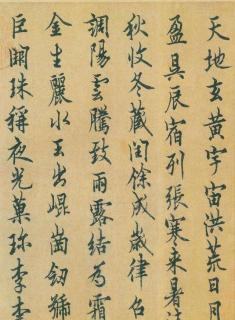 天地玄黃宇宙洪荒日月
盈昃辰宿列張寒来暑
秋收冬藏閏餘成歲律召
調陽雲騰致雨露結為霜
金生麗水玉出崐崗劒號
巨闕珠稱夜光菓珍李柰